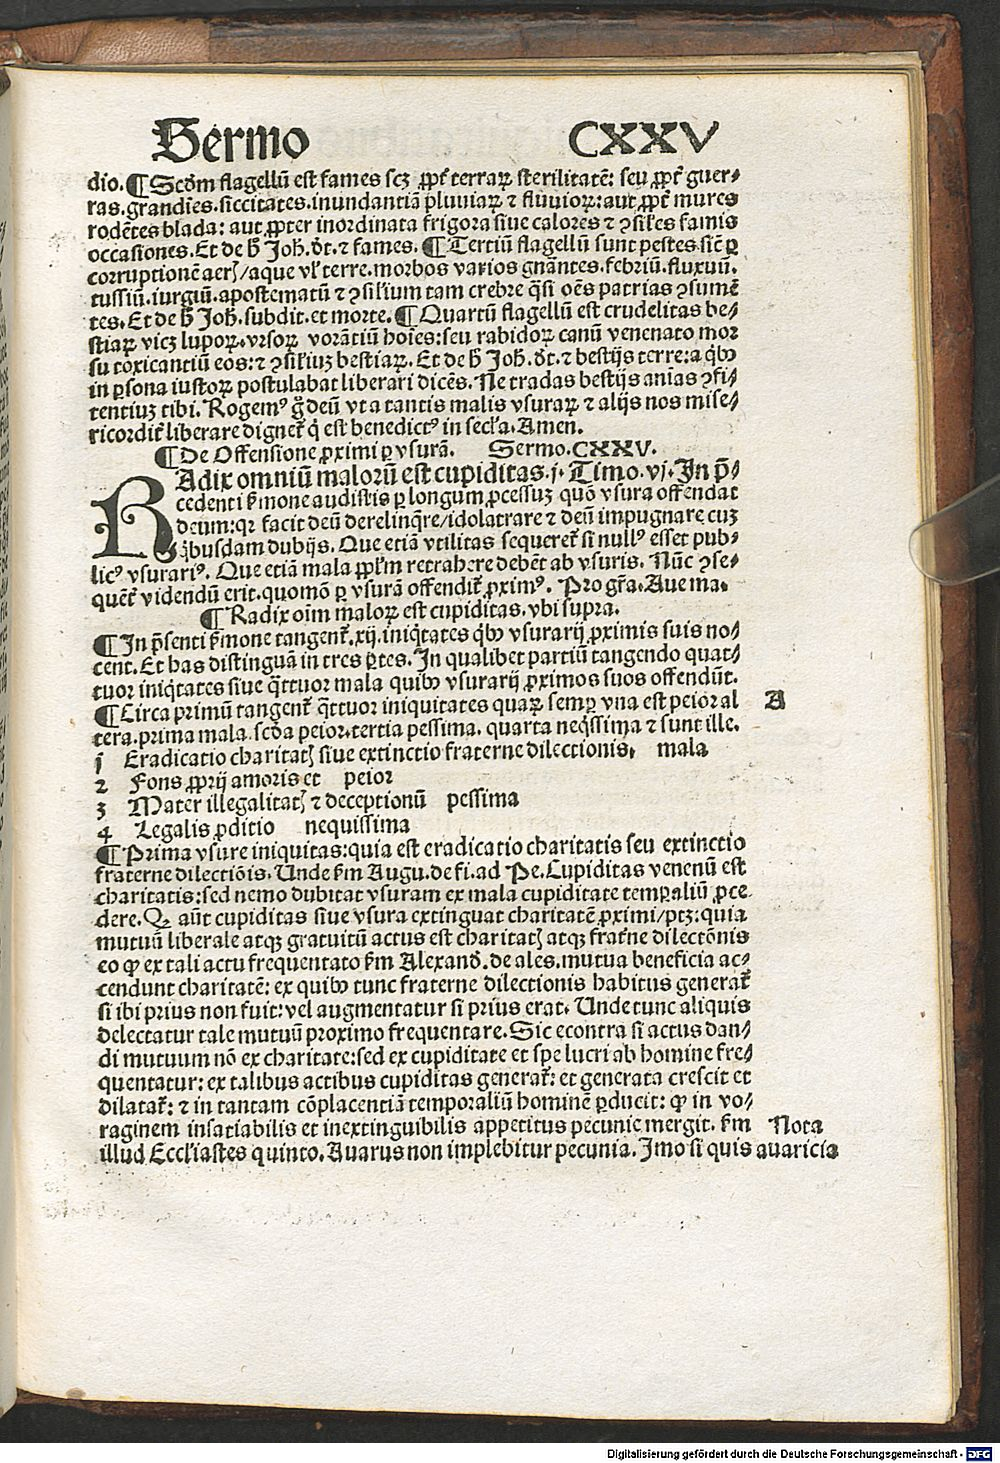 Sermo CXXV
dio. ¶ Scd̄m flagellū est fames scꝫ ꝓpt̄ terraꝝ sterilitatē: seu ꝓpt̄ guer⸗
ras. grandīes. siccitates. inundantiā pluuiaꝝ ⁊ fluuioꝝ: aut ꝓpt̄ mures
rodētes blada: aut ꝓpter inordinata frigora siue calores ⁊ ꝯsiłes famis
occasiones. Et de h̄ Joh̄. dt̄. ⁊ fames. ¶ Tertiū flagellū sunt pestes. sic̄ ꝑ
corruptionē aerꝭ/ aque vł terre. morbos varios gnāntes. febriū. fluxuū.
tussiū. iurgiū. apostematū ⁊ ꝯsiłium tam crebre q̄si oēs patrias ꝯsumē
tes. Et de h̄ Joh̄. subdit. et morte. ¶ Quartū flagellū est crudelitas be⸗
stiaꝝ vicꝫ lupoꝝ. vrsoꝝ vorātiū hoīes: seu rabidoꝝ canū venenato mor
su toxicantiū eos: ⁊ ꝯsiłiuꝫ bestiaꝝ. Et de h̄ Joh̄. dt̄. ⁊ bestijs terre: a qͥbꝰ
in ꝑsona iustoꝝ postulabat liberari dicēs. Ne tradas bestijs anīas ꝯfi⸗
tentiuꝫ tibi. Rogemꝰ g̊ deū vt a tantis malis vsuraꝝ ⁊ alijs nos mise⸗
ricordit̄ liberare dignet̄ q̄ est benedictꝰ in secła. Amen.
¶ De Offensione ꝓximi ꝑ vsurā. Sermo. CXXV.
RAdix omniū maloꝝ est cupiditas. j. Timo. vj. In p̄⸗
cedenti s̄mone audistis ꝑ longum ꝓcessuꝫ quō vsura offendat
deum: qꝛ facit deū derelinq̄re/ idolatrare ⁊ deū impugnare cuꝫ
qͥbusdam dubijs. Que etiā vtilitas sequeret̄ si nullꝰ esset pub⸗
licꝰ vsurariꝰ. Que etiā mala ꝓpłm retrahere debēt ab vsuris. Nūc ꝯse⸗
quēt̄ videndū erit. quomō ꝑ vsurā offendit̄ ꝓximꝰ. Pro gr̄a. Aue ma.
¶ Radix oīm maloꝝ est cupiditas. vbi supra.
¶ In p̄senti s̄mone tangent̄. xij. iniqͥtates qͥbꝰ vsurarij ꝓximis suis no⸗
cent. Et has distinguā in tres ꝑtes. In qualibet partiū tangendo quat⸗
tuor iniqͥtates siue q̄ttuor mala quibꝰ vsurarij ꝓximos suos offendūt.
¶ Circa primū tangent̄ q̄ttuor iniquitates quaꝝ semꝑ vna est peior al A
tera. prima mala. scd̄a peior. tertia pessima. quarta neqͥssima ⁊ sunt ille.
1 Eradicatio charitatꝭ siue extinctio fraterne dilectionis. mala
2 Fons ꝓprij amoris et peior
3 Mater illegalitatꝭ ⁊ deceptionū pessima
4 Legalis ꝓditio nequissima
¶ Prima vsure iniquitas: quia est eradicatio charitatis seu extinctio
fraterne dilectiōis. Unde s̄m Augu. de fi. ad Pe. Cupiditas venenū est
charitatis: sed nemo dubitat vsuram ex mala cupiditate temꝑaliū ꝓce
dere. Qꝫ aūt cupiditas siue vsura extinguat charitatē ꝓximi/ ptꝫ: quia
mutuū liberale atqꝫ gratuitū actus est charitatꝭ atqꝫ frat̄ne dilectōnis
eo ꝙ ex tali actu frequentato s̄m Alexand̄. de ales. mutua beneficia ac⸗
cendunt charitatē: ex quibꝰ tunc fraterne dilectionis habitus generat̄
si ibi prius non fuit: vel augmentatur si prius erat. Unde tunc aliquis
delectatur tale mutuū proximo frequentare. Sic econtra si actus dan⸗
di mutuum nō ex charitate: sed ex cupiditate et spe lucri ab homine fre⸗
quentatur: ex talibus actibus cupiditas generat̄: et generata crescit et
dilatat̄: ⁊ in tantam cōplacentiā temporaliū hominē ꝑducit: ꝙ in vo⸗
raginem insatiabilis et inextinguibilis appetitus pecunie mergit. s̄m Nota
illud Eccłiastes quinto. Auarus non implebitur pecunia. Jmo si quis auaricia
Digitalisierung gefördert durch die Deutsche Forschungsgemeinschaft - DFG